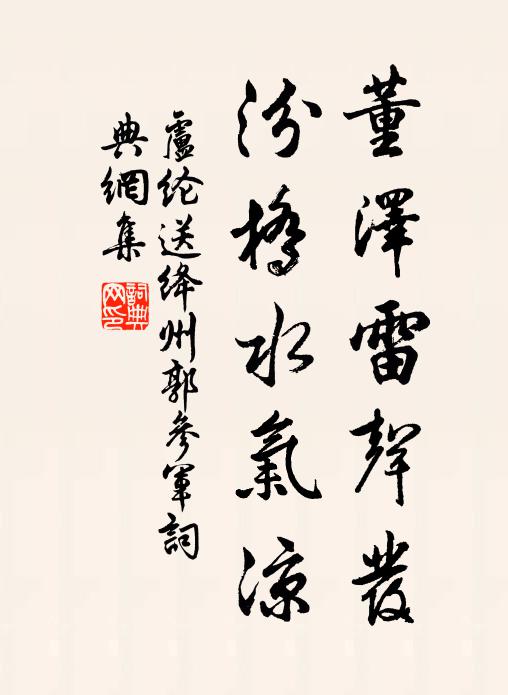 董澤雷聲發
汾橋水氣涼
盧纶送绛州郭參軍詞
典網集
詞典
网印